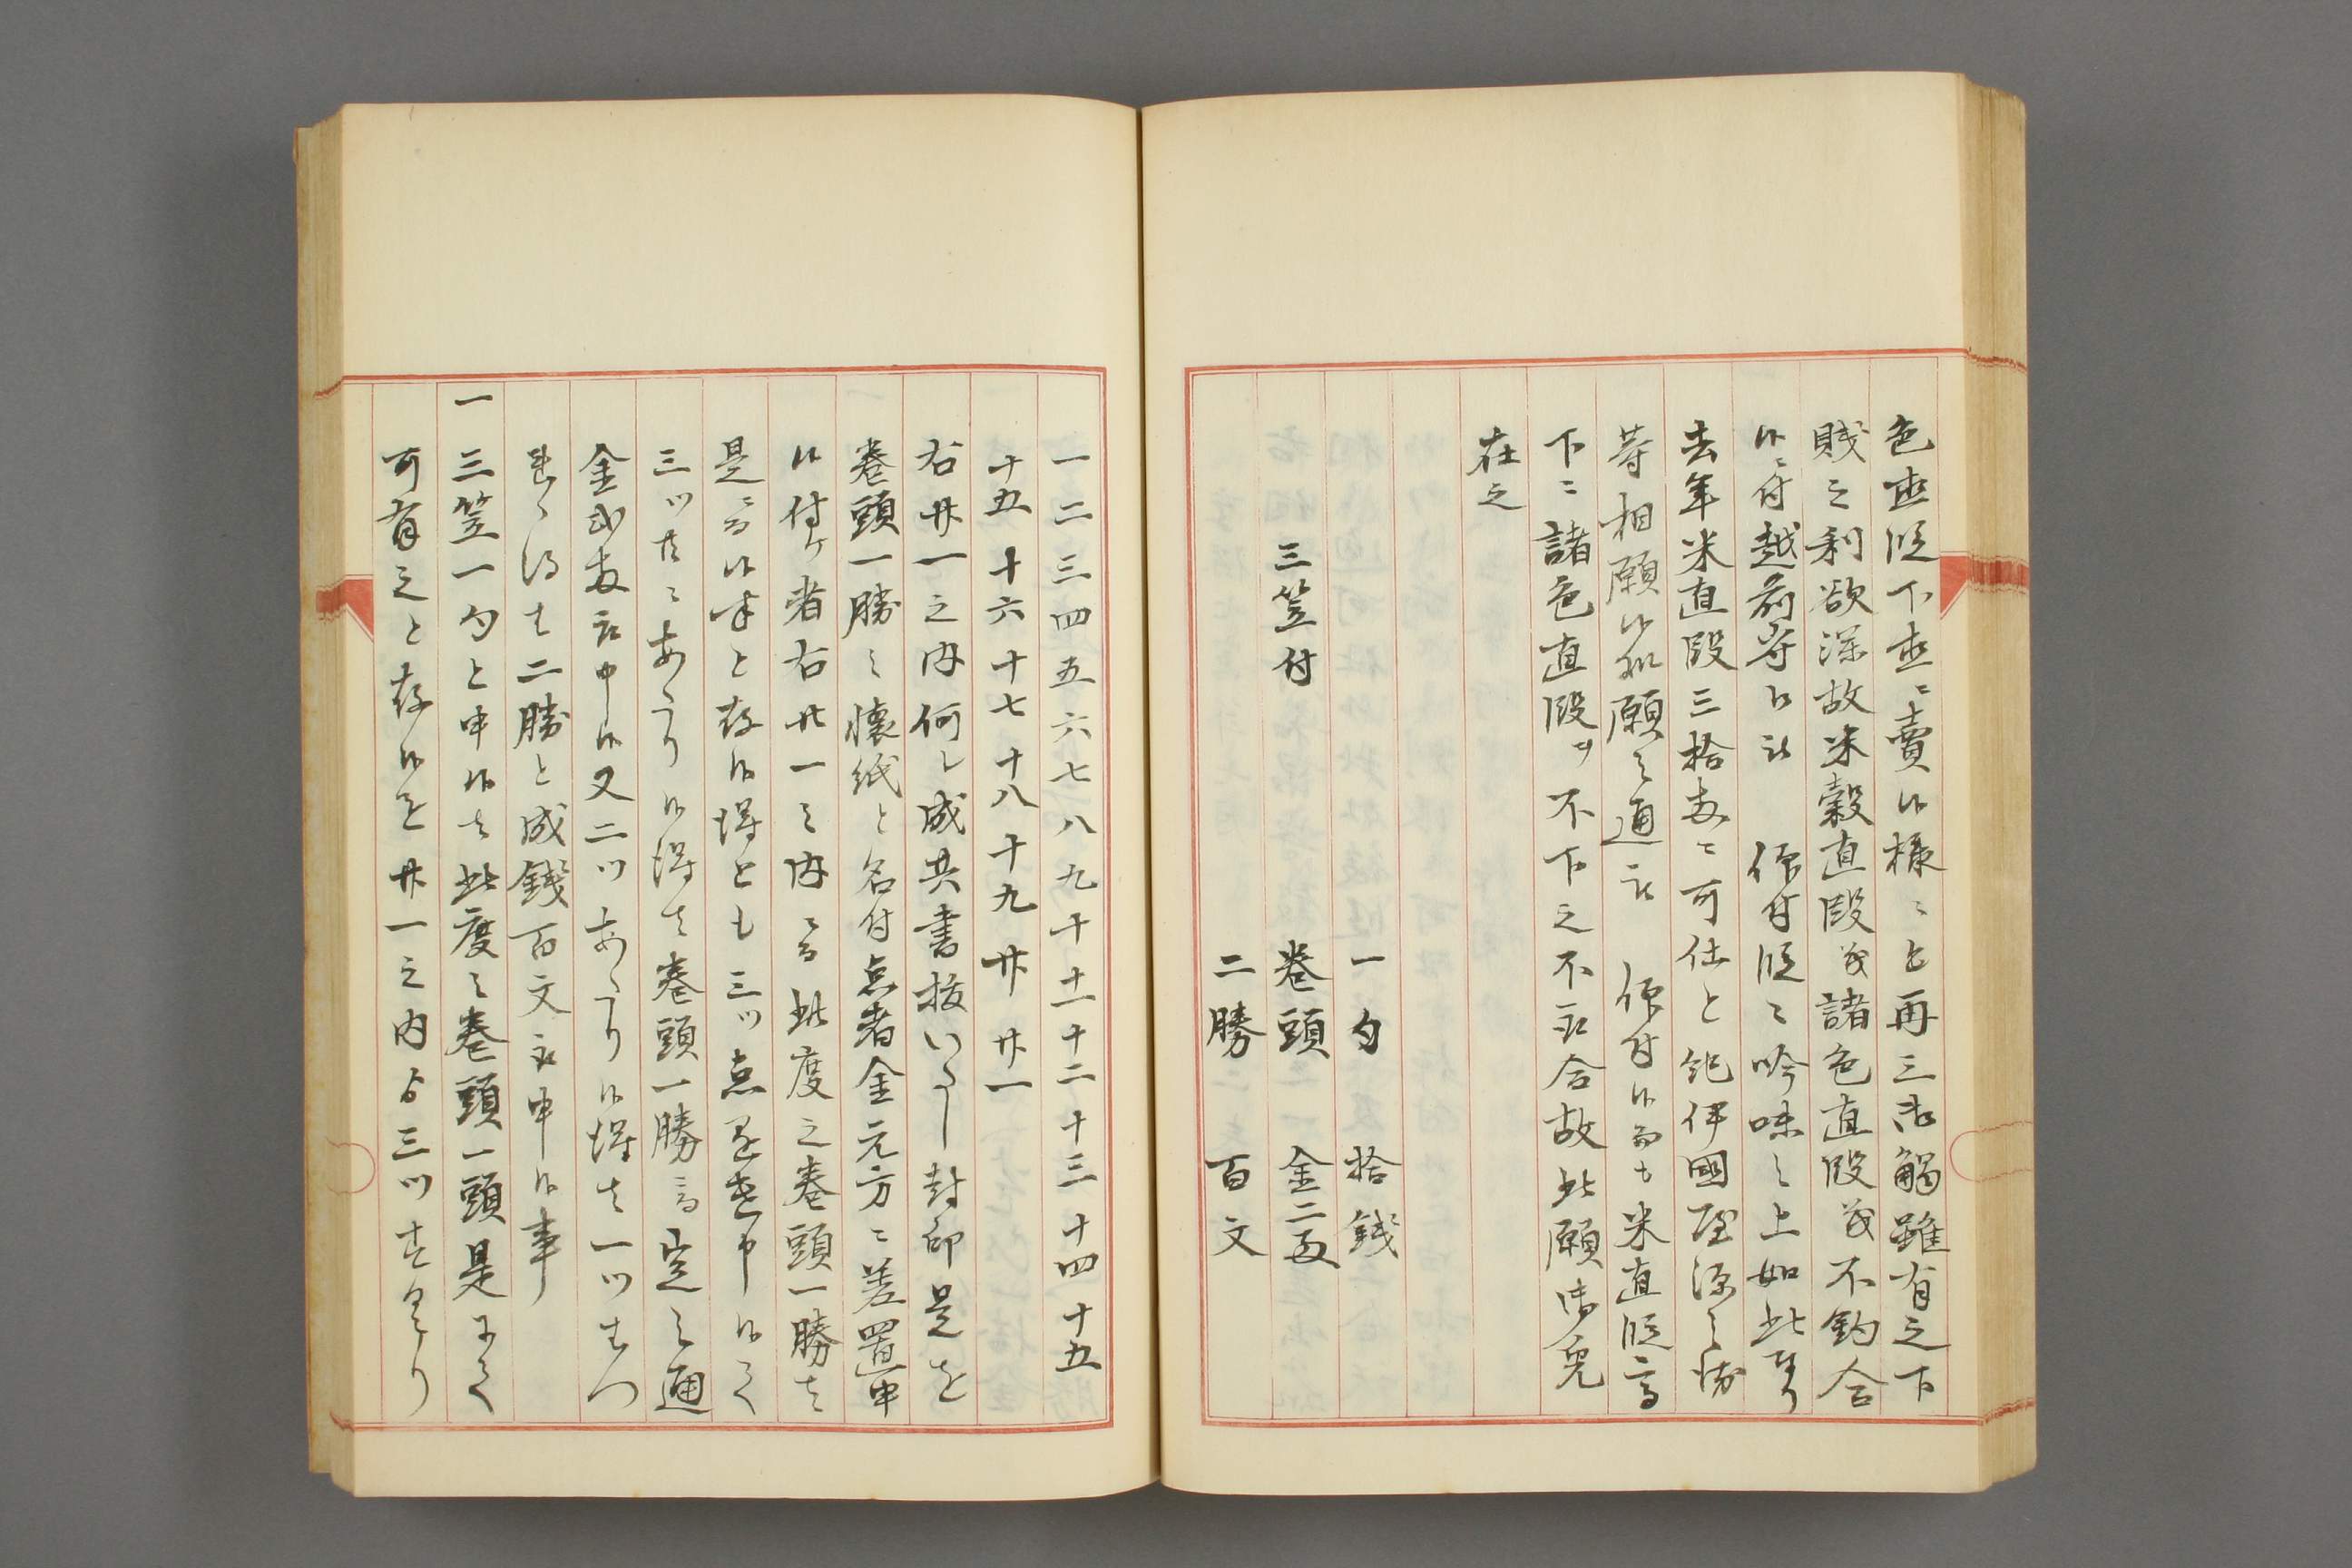 色直段下直ニ賣候様ニと再三御觸雖有之下
賎之利欲深故米穀直段茂諸色直段茂不釣合
候ニ付越前守被仰付段々吟味之上如此
去年米直段三拾両ニ可仕と紀伊國屋源
等相願候処願之通被仰付候而も米直段高
下ニ諸色直段ヲ不下之不取合故此願御免
在之
一句　拾錢
三笠付　巻頭　金二両
二勝　百文
一二三四五六七八九十十一十二十三十四十五
十五　十六　十七　十八　十九　廿　廿一
右廿一之内何レ成共書抜いたし封印是を
巻頭一勝之懐紙と名付点者金元方ニ差置申
候付ケ者右廿一之内ニ而此度之巻頭一勝は
是ニ而候半と存候得とも三ツ点
三ツ共ニあたり候得は巻頭一勝ニ而定之通
金弐両取申候又二ツあたり候得は一ツはつ
二勝と成錢百文取申候事
一三笠一句と申候は此度之巻頭一頭是
可有之と存候を廿一之内より三ツ